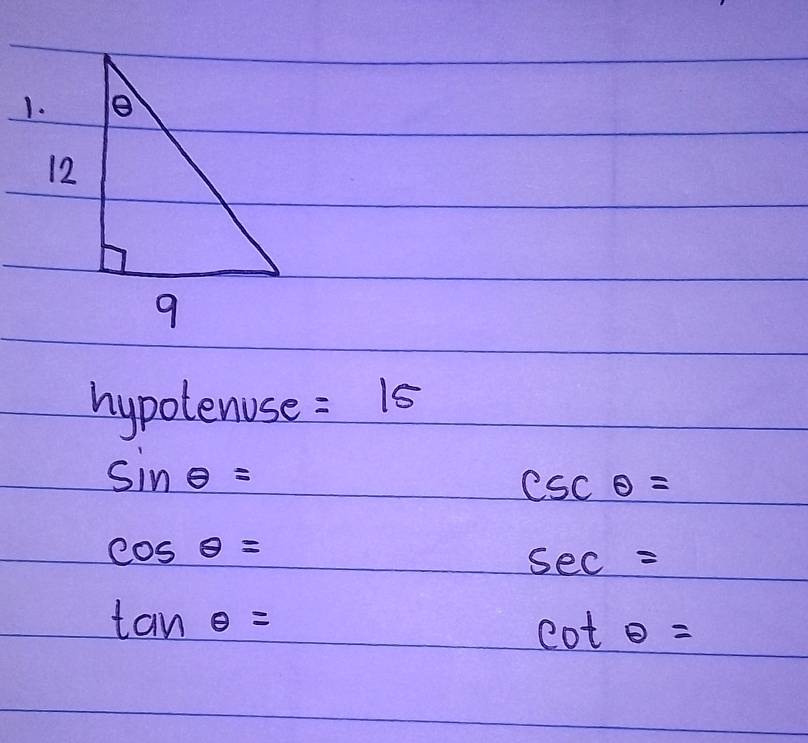 1.
θ
12
9
hypotenuse = 15
sin θ = csc θ =
cos θ = sec =
tan θ = cot θ =